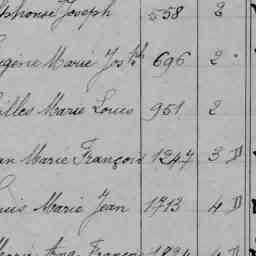 Alphonse Joseph 558 2
Eugène Marie Josph 696 2
Gilles Marie Louis 951 2
Jean Marie François 1247 3 D
Louis Marie Jean 1713 4 D
Marie Ang François 1834 4 D